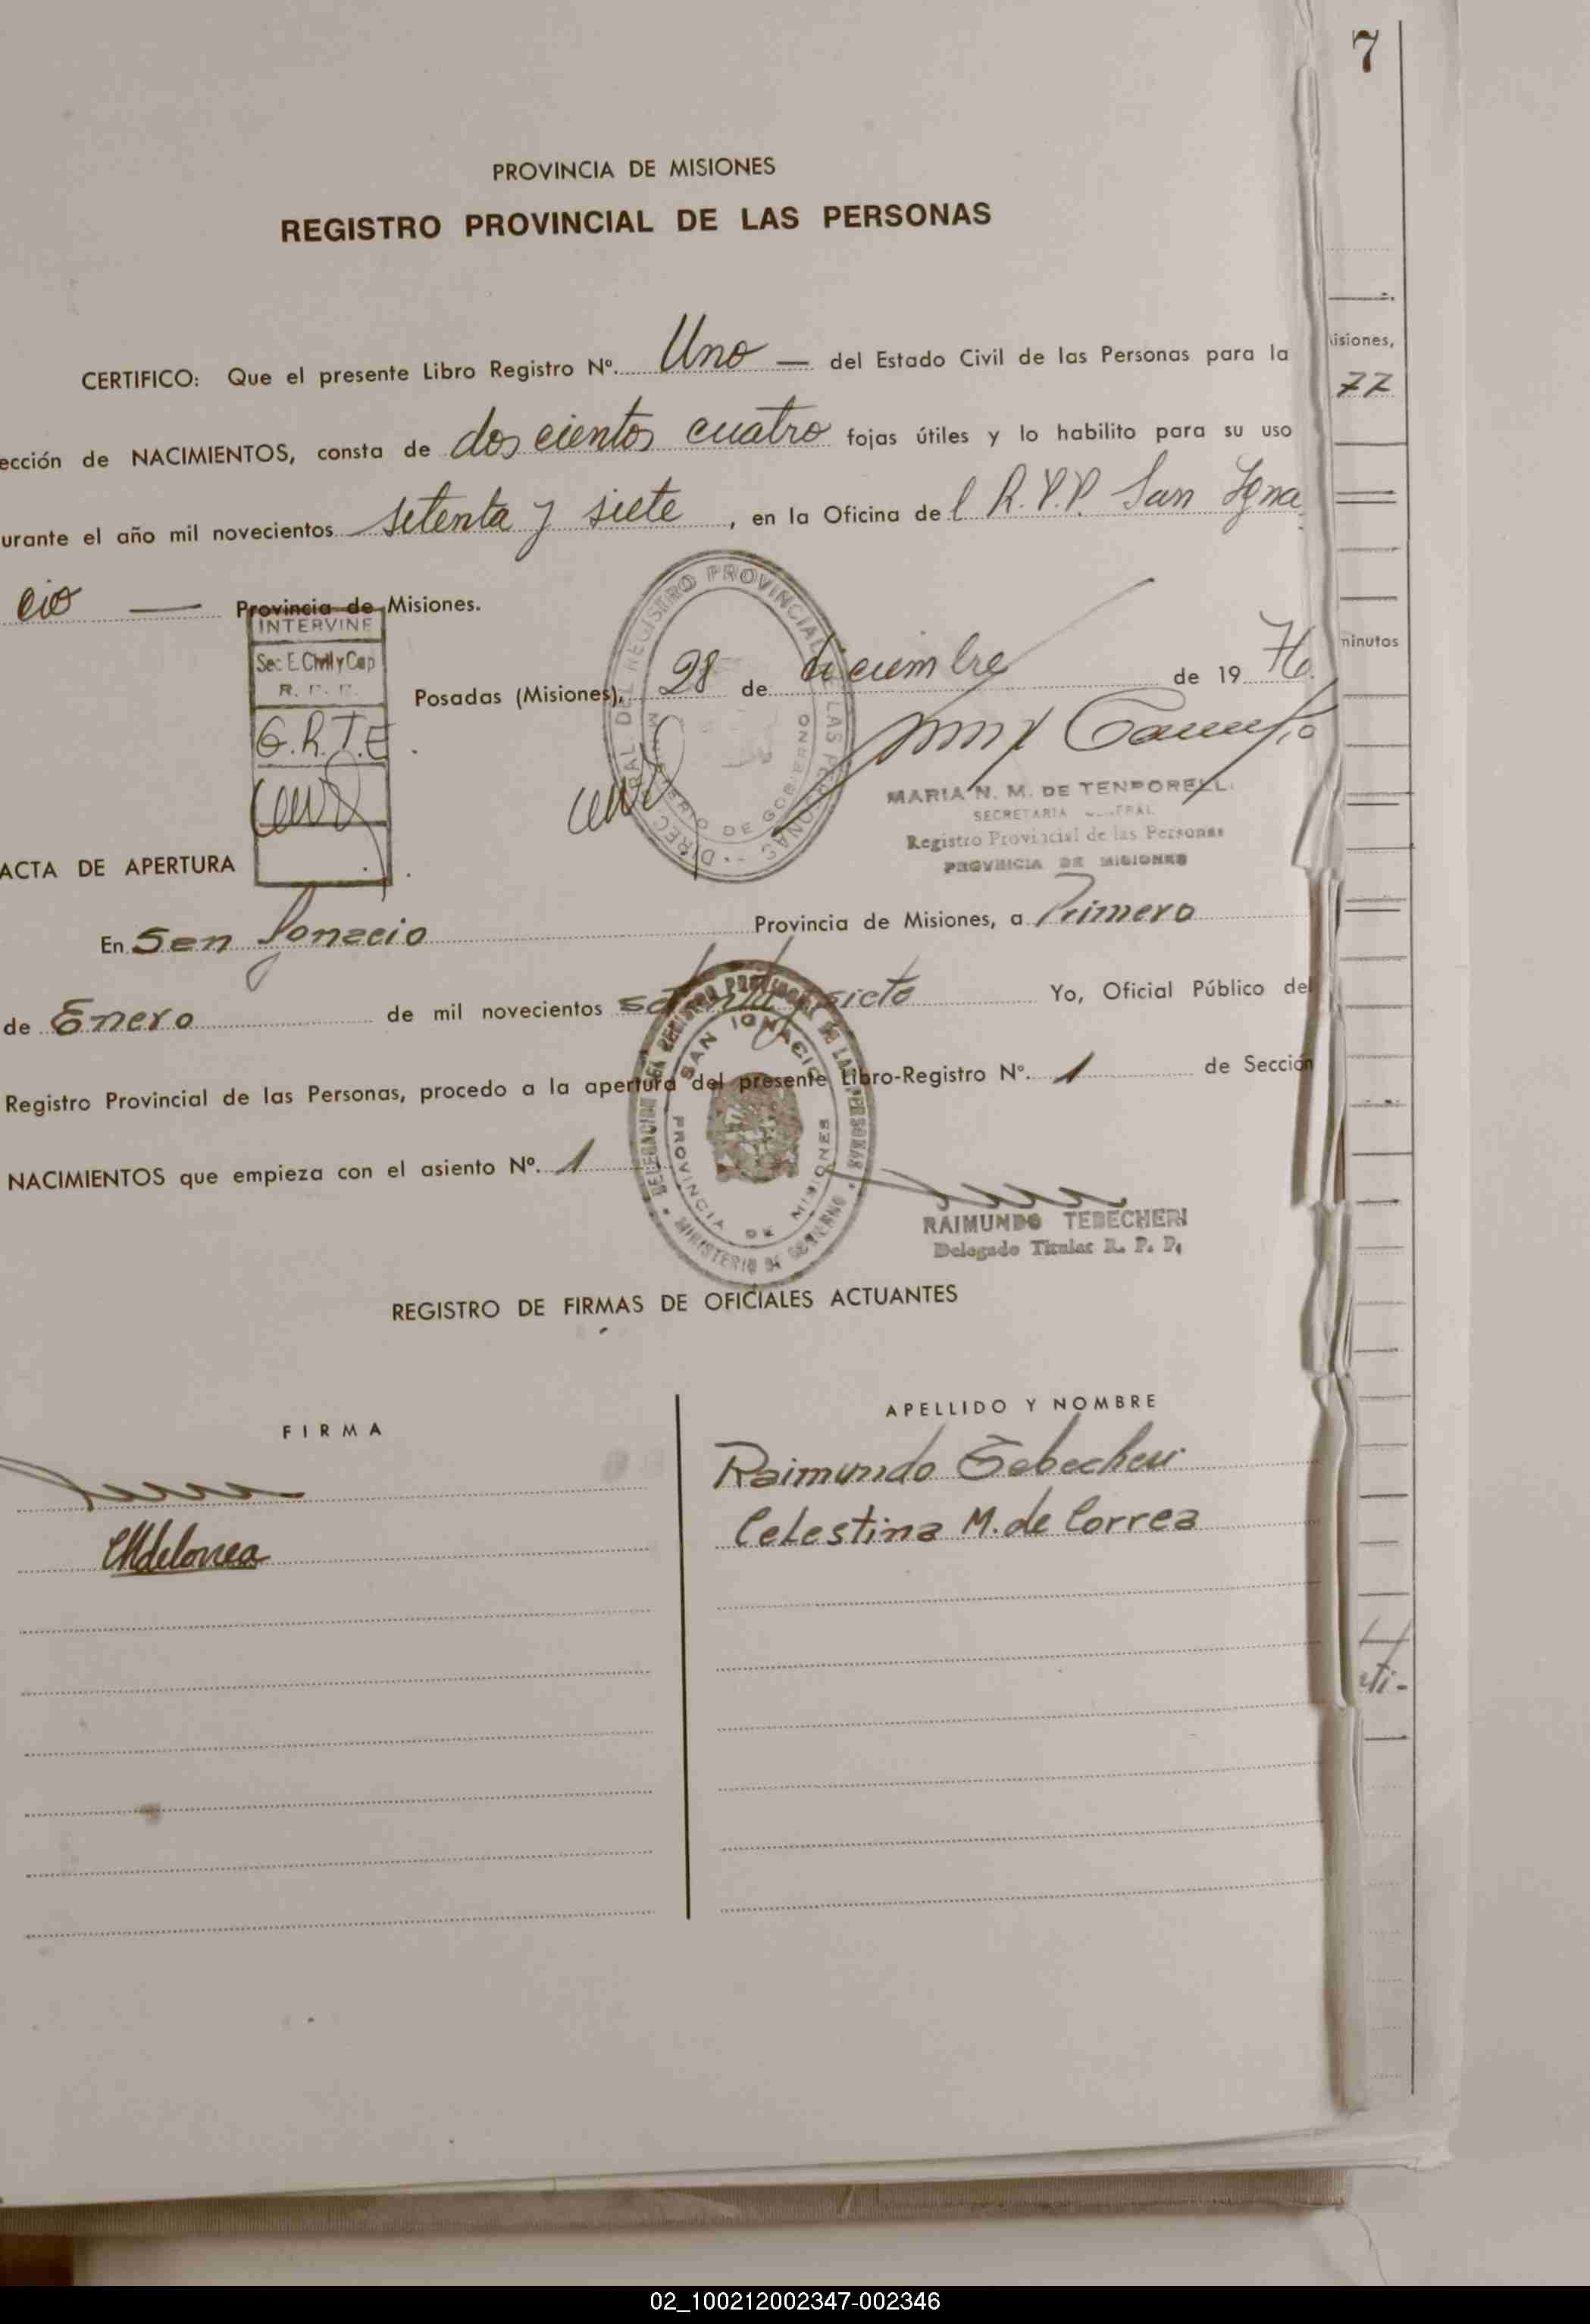 7
PROVINCIA DE MISIONES
REGISTRO PROVINCIAL DE LAS PERSONAS
CERTIFICO: Que el presente Libro Registro Nº. Uno — del Estado Civil de las Personas para la
ección de NACIMIENTOS, consta de dos cientos cuatro fojas útiles y lo habilito para su uso
urante el año mil novecientos setenta y siete, en la Oficina del R.P.P. San Igna
cio — Provincia de Misiones.
INTERVINE
Sec. E. Civil y Cap
R. P. P.
G.R.T.E.
Posadas (Misiones), 28 de diciembre de 19 76.
DIRECCION GENERAL DEL REGISTRO PROVINCIAL DE LAS PERSONAS
MINISTERIO DE GOBIERNO
MARIA N. M. DE TENPORELL
SECRETARIA GENERAL
Registro Provincial de las Personas
PROVINCIA DE MISIONES
ACTA DE APERTURA
En San Ignacio Provincia de Misiones, a Primero
de Enero de mil novecientos setenta y siete Yo, Oficial Público del
Registro Provincial de las Personas, procedo a la apertura del presente Libro-Registro Nº. 1 de Sección
NACIMIENTOS que empieza con el asiento Nº. 1
DELEGACION DEL REGISTRO PROVINCIAL DE LAS PERSONAS
SAN IGNACIO
PROVINCIA DE MISIONES
MINISTERIO DE GOBIERNO
RAIMUNDO TEBECHERI
Delegado Titular R. P. P.
REGISTRO DE FIRMAS DE OFICIALES ACTUANTES
FIRMA
APELLIDO Y NOMBRE
Raimundo Tebecheri
CMdeCorrea
Celestina M. de Correa
isiones,
77
minutos
ti-
02_100212002347-002346